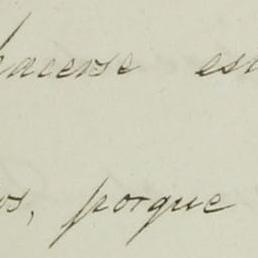 hacerse est
os, porque